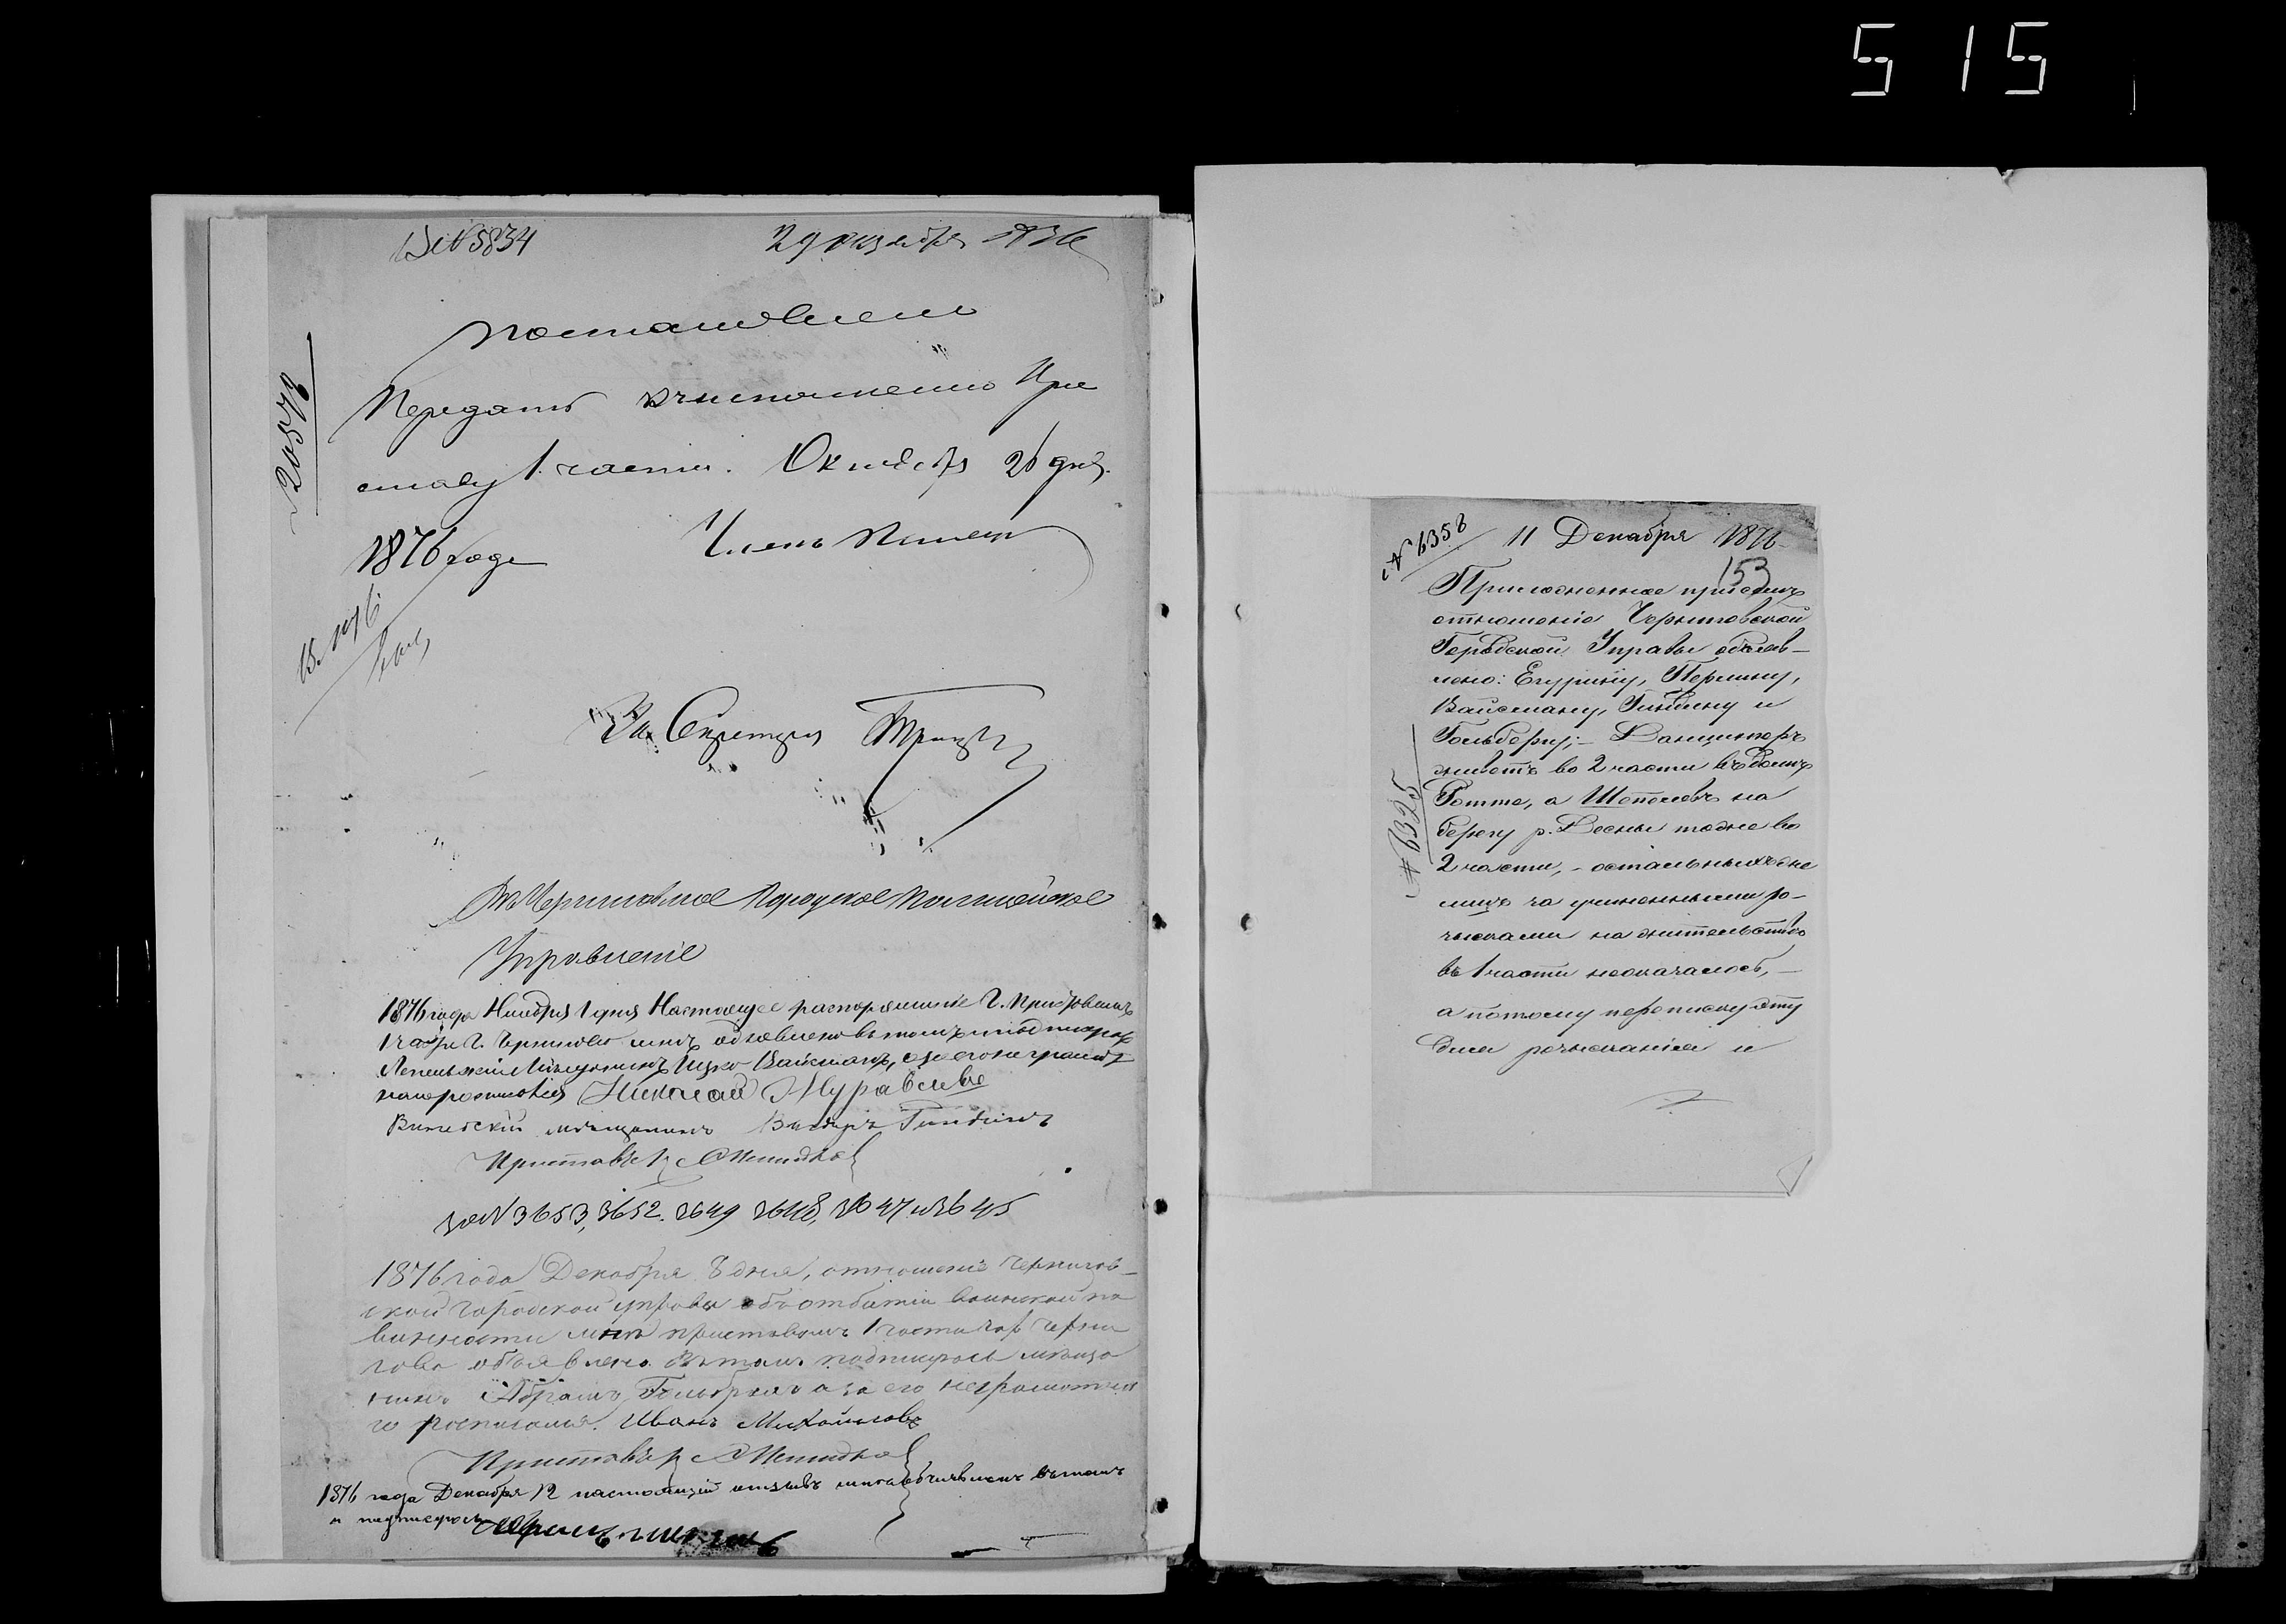 515
№ 5834
29 октября 1876
20578
Постановлено
Передать къ исполненію При
ставу 1 части. Октября 26 дня.
1876 года
Членъ
За Секретаря
Въ Черниговское Городское Полицейское
Управленіе
1876 года Ноября 1 дня Настоящее распоряженіе Г. Приставомъ
1 части г. Чернигова мнѣ объявлено въ томъ и подписуюсь
Лепельскій Мѣщанинъ Ицко Вайсманъ, а за его неграмот
Николай Журавлевъ
Витебскій мѣщанинъ Гиндинъ
Приставъ
№ 3653, 3652. 3649 3648, 3647 и 3645
1876 года Декабря 8 дня, отношеніе Чернигов-
ской Городской управы объ отбытіи воинской по
винности мнѣ приставомъ 1 части гор Черни
гова объявлено въ томъ подписуюсь мѣща
нинъ Абрамъ Гольбергъ а за его неграмотнаго
го росписался. Иванъ Михайловъ
Приставъ
1876 года Декабря 12 настоящій отзывъ мнѣ объявленъ въ томъ
и подписуюсь
№ 6358
11 Декабря 1876
153
Приложенное при семъ
отношеніе Черниговской
Городской Управы объяв-
лено: Егурину, Перлину,
Вайсману, Гиндину и
Гольбергу;- Данцигеръ
живетъ во 2 части въ домѣ
Ротте, а Шепелевъ на
берегу р. Десны тоже во
2 части, - остальныхъ же
лицъ за учиненными ро-
зысками на жительствѣ
въ 1 части неоказалось, -
а потому переписку эту
для розысканія и
№ 6325